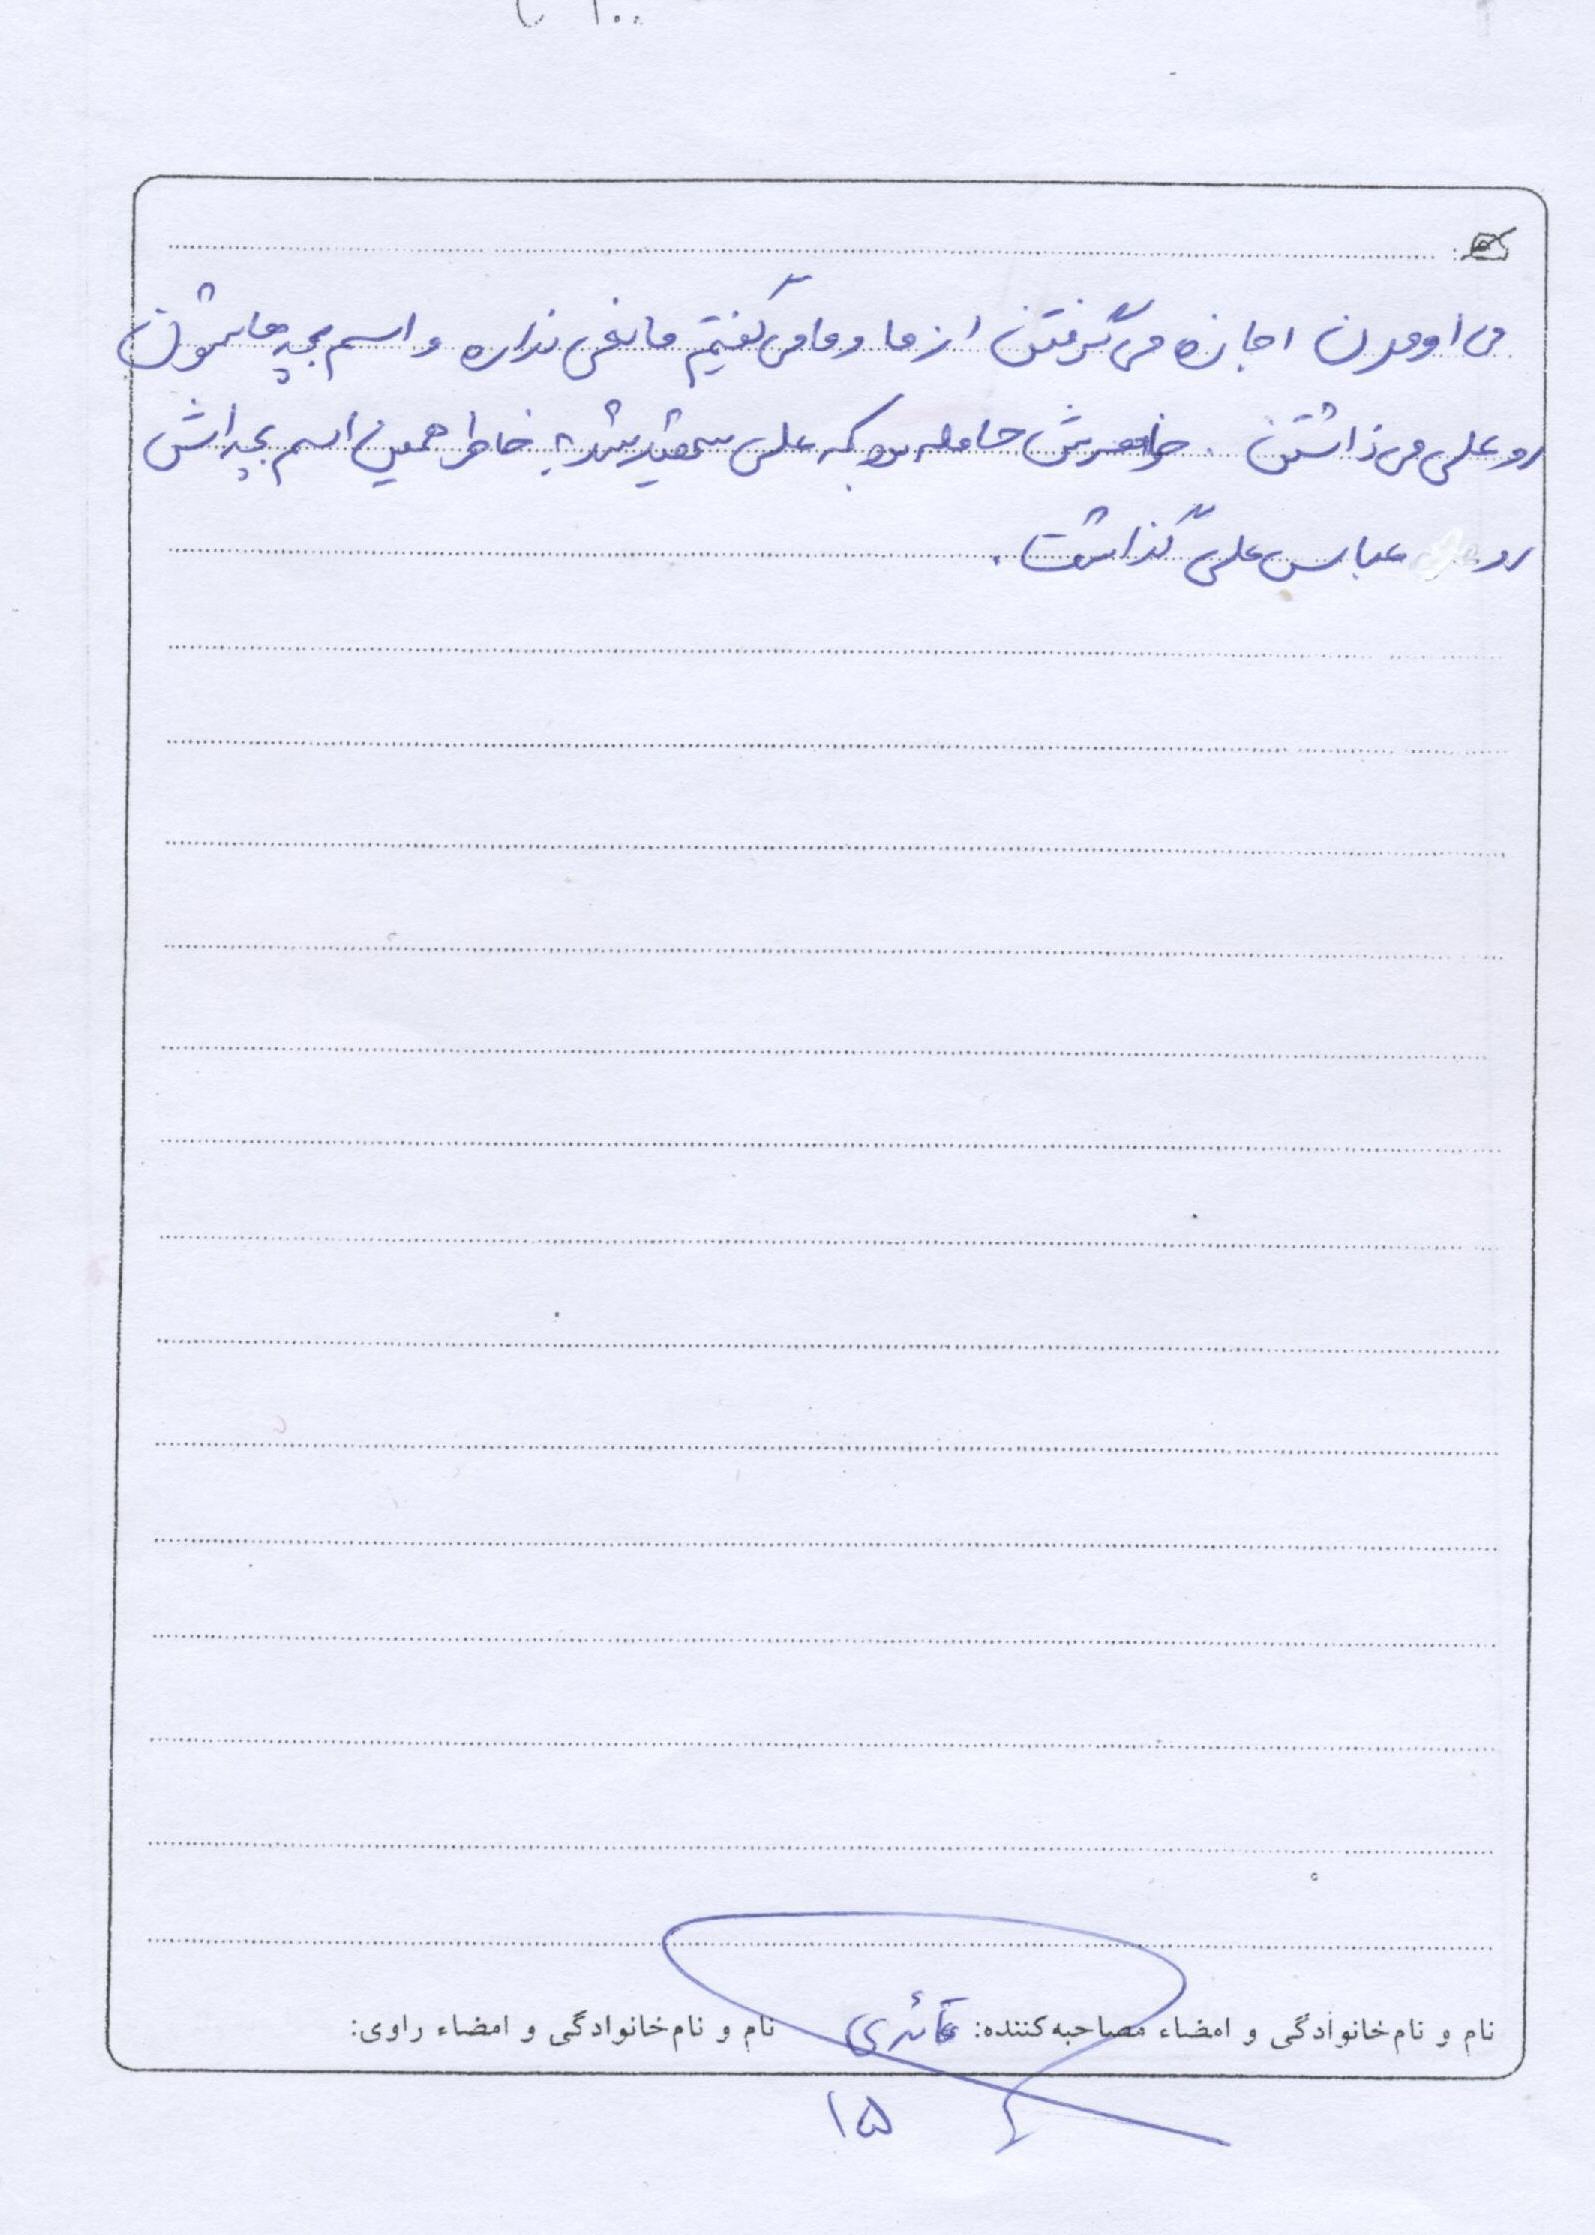 می اومدن اجازه می گرفتن از ما و ما می گفتیم مانعی نداره و اسم بچه هاشون
رو علی می ذاشتن . خواهرش حامله بود که علی شهید شد به خاطر همین اسم بچه اش
رو عباس علی گذاشت .
نام و نام‌خانوادگی و امضاء مصاحبه‌کننده: قائدی نام و نام‌خانوادگی و امضاء راوی:
۱۵